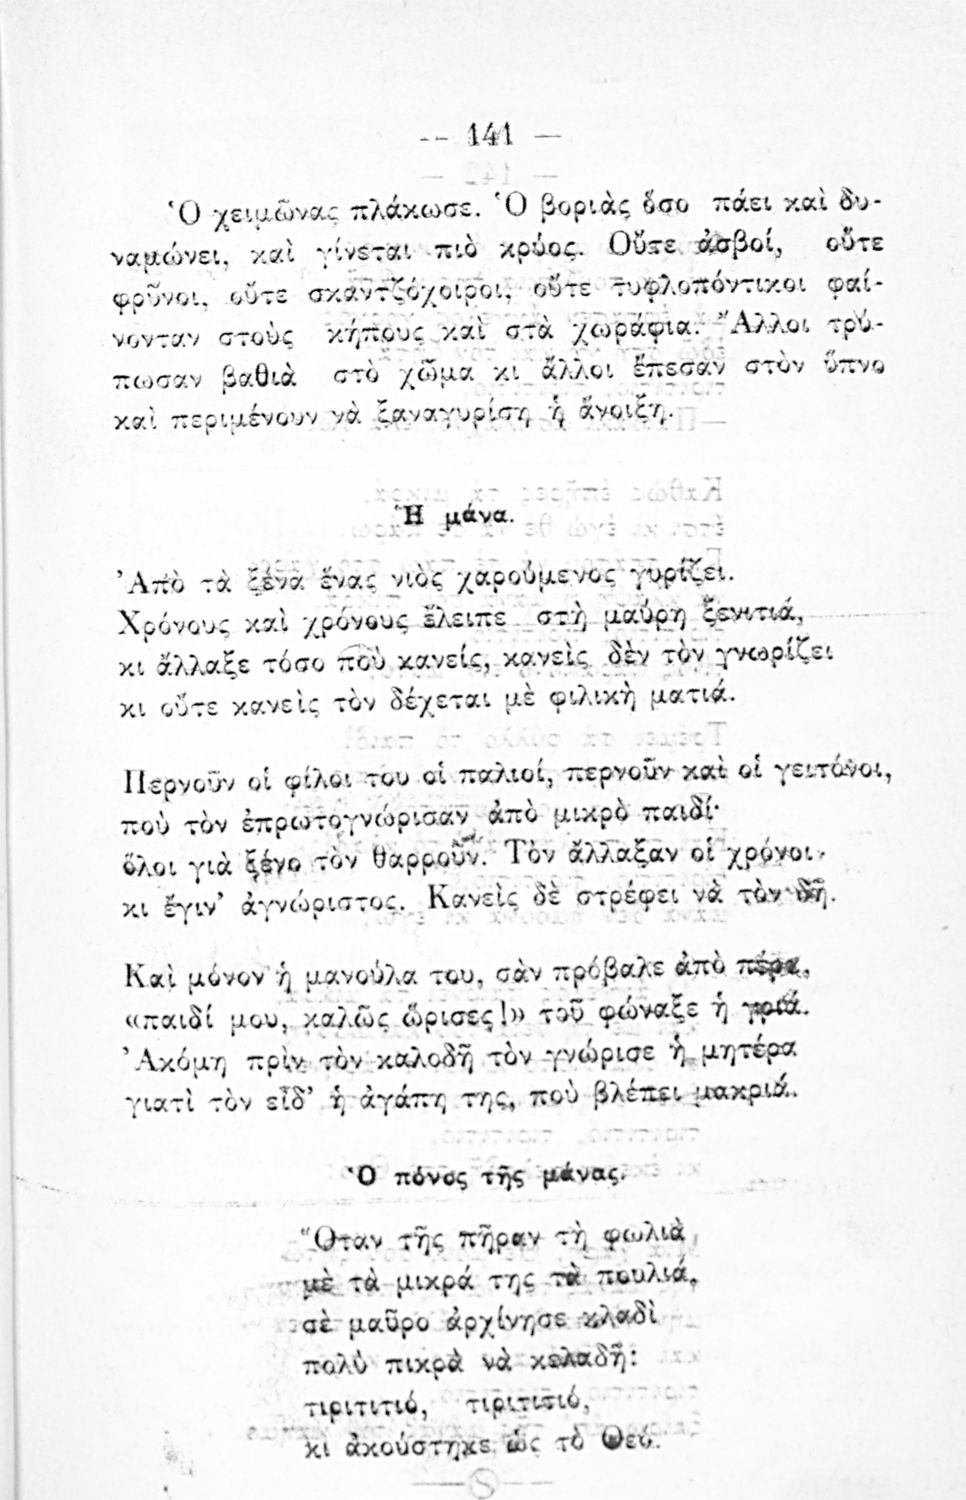 -- 141 —
Ὁ χειμῶνας πλάκωσε. Ὁ βοριὰς ὅσο πάει καὶ δυ-
ναμώνει, καὶ γίνεται πιὸ κρύος. Οὔτε ἀσβοί, οὔτε
φρῦνοι, οὔτε σκαντζόχοιροι, οὔτε τυφλοπόντικοι φαί-
νονταν στοὺς κήπους καὶ στὰ χωράφια. Ἄλλοι τρύ-
πωσαν βαθιὰ στὸ χῶμα κι ἄλλοι ἔπεσαν στὸν ὕπνο
καὶ περιμένουν νὰ ξαναγυρίση ἡ ἄνοιξη.
Ἡ μάνα.
Ἀπὸ τὰ ξένα ἕνας νιὸς χαρούμενος γυρίζει.
Χρόνους καὶ χρόνους ἔλειπε στὴ μαύρη ξενιτιά,
κι ἄλλαξε τόσο ποὺ κανείς, κανεὶς δὲν τὸν γνωρίζει
κι οὔτε κανεὶς τὸν δέχεται μὲ φιλικὴ ματιά.
Περνοῦν οἱ φίλοι του οἱ παλιοί, περνοῦν καὶ οἱ γειτόνοι,
ποὺ τὸν ἐπρωτογνώρισαν ἀπὸ μικρὸ παιδί·
ὅλοι γιὰ ξένο τὸν θαρροῦν. Τὸν ἄλλαξαν οἱ χρόνοι
κι ἔγιν’ ἀγνώριστος. Κανεὶς δὲ στρέφει νὰ τὸν δῆ.
Καὶ μόνον ἡ μανούλα του, σὰν πρόβαλε ἀπὸ πέρα,
«παιδί μου, καλῶς ὥρισες!» τοῦ φώναξε ἡ γριά.
Ἀκόμη πρὶν τὸν καλοδῆ τὸν γνώρισε ἡ μητέρα
γιατὶ τὸν εἶδ’ ἡ ἀγάπη της, ποὺ βλέπει μακριά.
Ὁ πόνος τῆς μάνας.
Ὅταν τῆς πῆραν τὴ φωλιὰ
μὲ τὰ μικρά της τὰ πουλιά,
σὲ μαῦρο ἀρχίνησε κλαδὶ
πολὺ πικρὰ νὰ κελαδῆ:
τιριτιτιό, τιριτιτιό,
κι ἀκούστηκε ὡς τὸ Θεό.